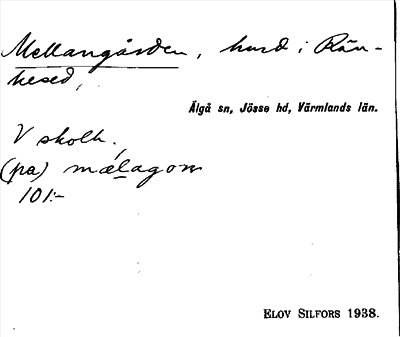 Mellangården, hmd i Rän-
kesed,
Älgå sn, Jösse hd, Värmlands län.
V skolh.
(pa) mælagom
101:-
ELOV SILFORS 1938.